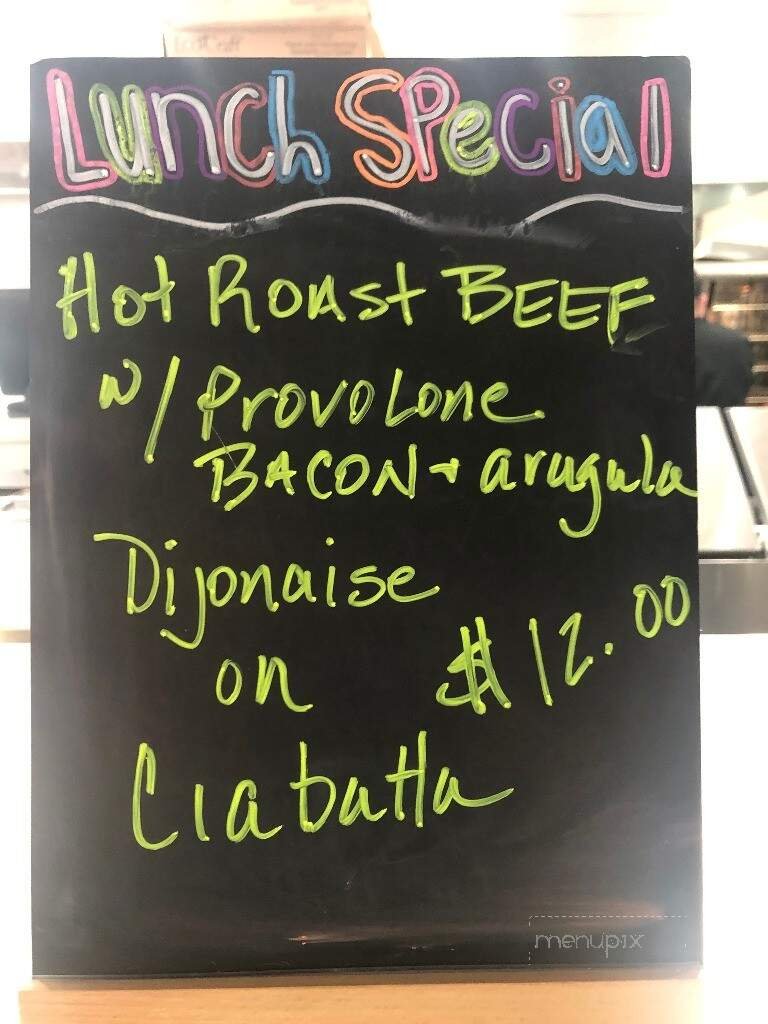 Lunch Special
Hot Roast BEEF
w/ Provolone
BACON + arugula
Dijonaise
on $12.00
Ciabatta
menupix